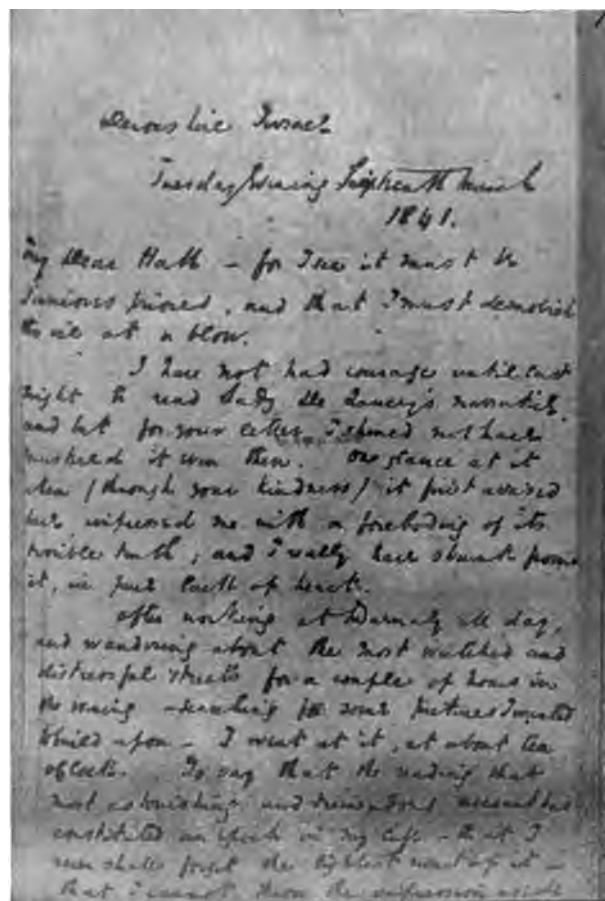 Devonshire Terrace
Tuesday Evening Sixteenth March
1841.
My Dear Hall – for I see it must be
"Juniores priores", and that I must demolish
the ice at a blow.
I have not had courage until last
night to read Lady De Lancey's narrative,
and but for your letter, I should not have
mustered it even then. One glance at it
when (through your kindness) it first arrived
had impressed me with a foreboding of its
terrible truth; and I really have shrunk from
it, in pure lack of heart.
After working at Barnaby all day,
and wandering about the most wretched and
distressful streets for a couple of hours in
the evening – searching for some pictures I wanted
to build upon – I went at it, at about ten
o'clock. To say that the reading that
most astonishing and tremendous account has
constituted an epoch in my life – that I
never shall forget the lightest word of it –
that I cannot throw the impression aside